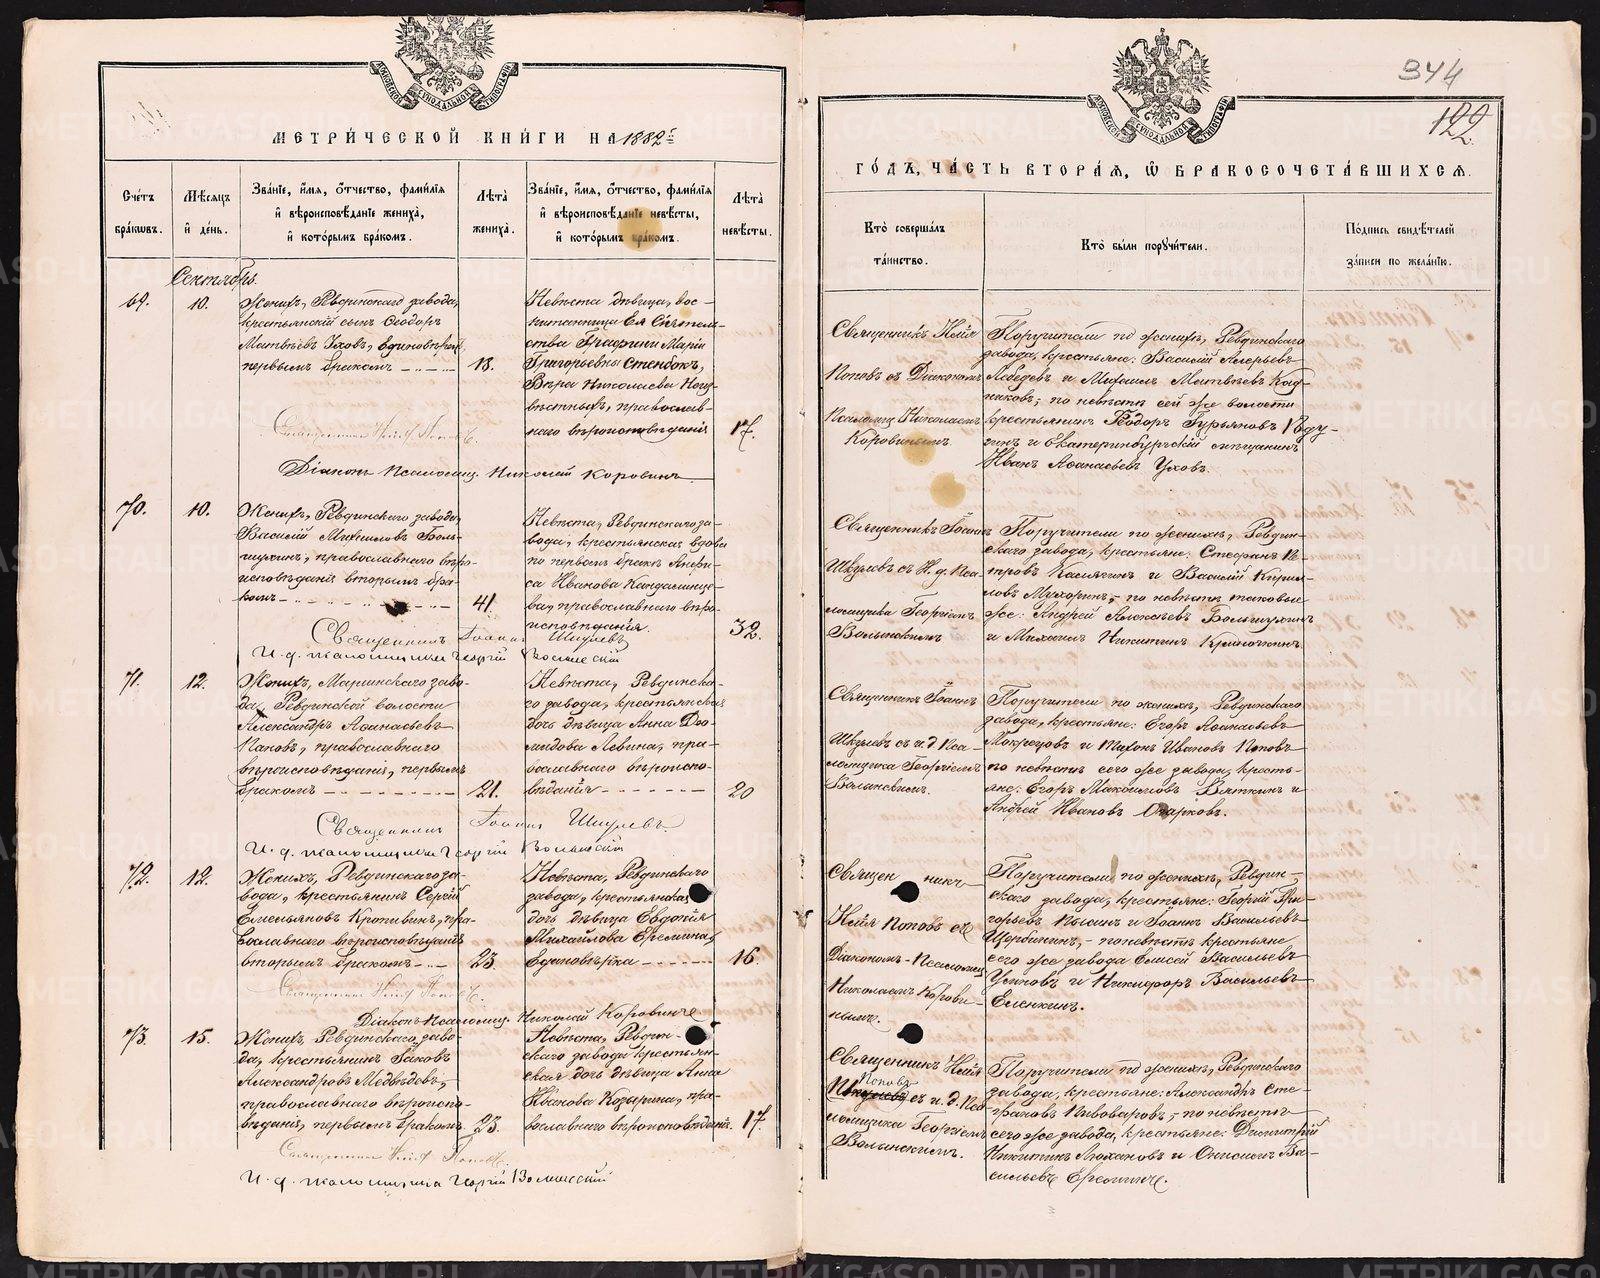 МЕТРИ́ЧЕСКОЙ КНИ́ГИ НА 1882 г.
Сче́тъ бра́кωвъ.
Мѣ́сяцъ и҆ де́нь.
Зва́нїе, и҆́мя, ѻ҆́тчество, фами́лїя и҆ вѣроисповѣ́данїе жениха̀, и҆ кото́рымъ бра́комъ.
Лѣ́та жениха̀.
Зва́нїе, и҆́мя, ѻ҆́тчество, фами́лїя и҆ вѣроисповѣ́данїе невѣ́сты, и҆ кото́рымъ бра́комъ.
Лѣ́та невѣ́сты.
Сентябрь.
69.
10.
Женихъ, Ревдинскаго завода,
крестьянскій сынъ Ѳеодоръ
Матвѣевъ Уховъ, единовѣрецъ,
первымъ бракомъ
18.
Невѣста дѣвица, вос-
питанница Ея Сіятель-
ства Графини Маріи
Григорьевны Стенбокъ,
Вѣра Николаева
православ-
наго вѣроисповѣданія
17.
Священникъ Илія Поповъ.
Діаконъ Псаломщ. Николай Коровинъ
70.
10.
Женихъ, Ревдинскаго завода,
Василій Михаиловъ Боль-
шухинъ, православнаго вѣро-
исповѣданія вторымъ бра-
комъ
41.
Невѣста, Ревдинскаго за-
вода, крестьянская вдова
по первомъ бракѣ
Иванова
ва, православнаго вѣро-
исповѣданія.
32.
Священникъ Іоаннъ Шкулевъ
И. д. псаломщика Георгій Волынскій
71.
12.
Женихъ, Маріинскаго заво-
да, Ревдинской волости
Александръ Аѳанасьевъ
Пановъ, православнаго
вѣроисповѣданія, первымъ
бракомъ
21.
Невѣста, Ревдинска-
го завода, крестьянская
дочь дѣвица Анна Дво-
Левина, пра-
вославнаго вѣроиспо-
вѣданія
20
Священникъ Іоаннъ Шкулевъ.
И. д. псаломщика Георгій Волынскій
72.
12.
Женихъ, Ревдинскаго за-
вода, крестьянинъ Сергій
Емельяновъ Кропивинъ, пра-
вославнаго вѣроисповѣданія
вторымъ бракомъ
23.
Невѣста, Ревдинскаго
завода, крестьянская
дочь дѣвица Евдокія
Михайлова Еремина,
Единовѣрка
16.
Священникъ Илія Поповъ.
Діаконъ Псаломщ. Николай Коровинъ
73.
15.
Женихъ, Ревдинскаго заво-
да, крестьянинъ Іаковъ
Александровъ Медвѣдевъ,
православнаго вѣроиспо-
вѣданія, первымъ бракомъ.
23.
Невѣста, Ревдин-
скаго завода крестьян-
ская дочь дѣвица Анна
Иванова Козырина, пра-
вославнаго вѣроисповѣданія.
17.
Священникъ Илія Поповъ.
И. д. псаломщика Георгій Волынскій
344
122.
ГО́ДЪ, ЧА́СТЬ ВТОРА́Я, Ѽ БРАКОСОЧЕТА́ВШИХСЯ.
Кто̀ соверша́лъ та́инство.
Кто̀ бы́ли порꙋчи́тели.
По́дпись свидѣ́телей за́писи по жела́нїю.
Священникъ Илія
Поповъ съ Діакономъ
Псаломщ. Николаемъ
Коровинымъ
Поручители по женихѣ, Ревдинскаго
завода, крестьяне: Василій
Лебедевъ и Михаилъ Матвѣевъ
по невѣстѣ сей же волости
крестьянинъ Ѳедоръ Гурьяновъ
и Екатеринбургскій мѣщанинъ
Иванъ Аѳанасьевъ Уховъ.
Священникъ Іоаннъ
Шкулевъ съ И. д. Пса-
ломщика Георгіемъ
Волынскимъ
Поручители по женихѣ, Ревдин-
скаго завода, крестьяне: Стефанъ Пе-
тровъ и Василій Кирил-
ловъ Мухоринъ, - по невѣстѣ таковые
же: Андрей Алексѣевъ Большухинъ
и Михаилъ Никитинъ
Священникъ Іоаннъ
Шкулевъ съ и. д. Пса-
ломщика Георгіемъ
Волынскимъ.
Поручители по женихѣ, Ревдинскаго
завода, крестьяне: Егоръ Аѳанасьевъ
Мокрецовъ и Тихонъ Ивановъ Поповъ
по невѣстѣ сего же завода, кресть-
яне: Егоръ Максимовъ Вяткинъ и
Андрей Ивановъ
Священникъ
Илія Поповъ съ
Діакономъ-Псаломщ.
Николаемъ Корови-
нымъ.
Поручители по женихѣ, Ревдин-
скаго завода, крестьяне: Георгій Гри-
горьевъ и Іоаннъ Васильевъ
Щербининъ, - по невѣстѣ крестьяне
сего же завода Елисей Васильевъ
и Никифоръ Васильевъ
Еленкинъ.
Священникъ Илія
Поповъ
съ и. д. Пса-
ломщика Георгіемъ
Волынскимъ.
Поручители по женихѣ, Ревдинскаго
завода, крестьяне: Александръ Сте-
фановъ Пивоваровъ, - по невѣстѣ
сего же завода, крестьяне: Димитрій
Никитинъ и Онисимъ Ва-
сильевъ Ереминъ.